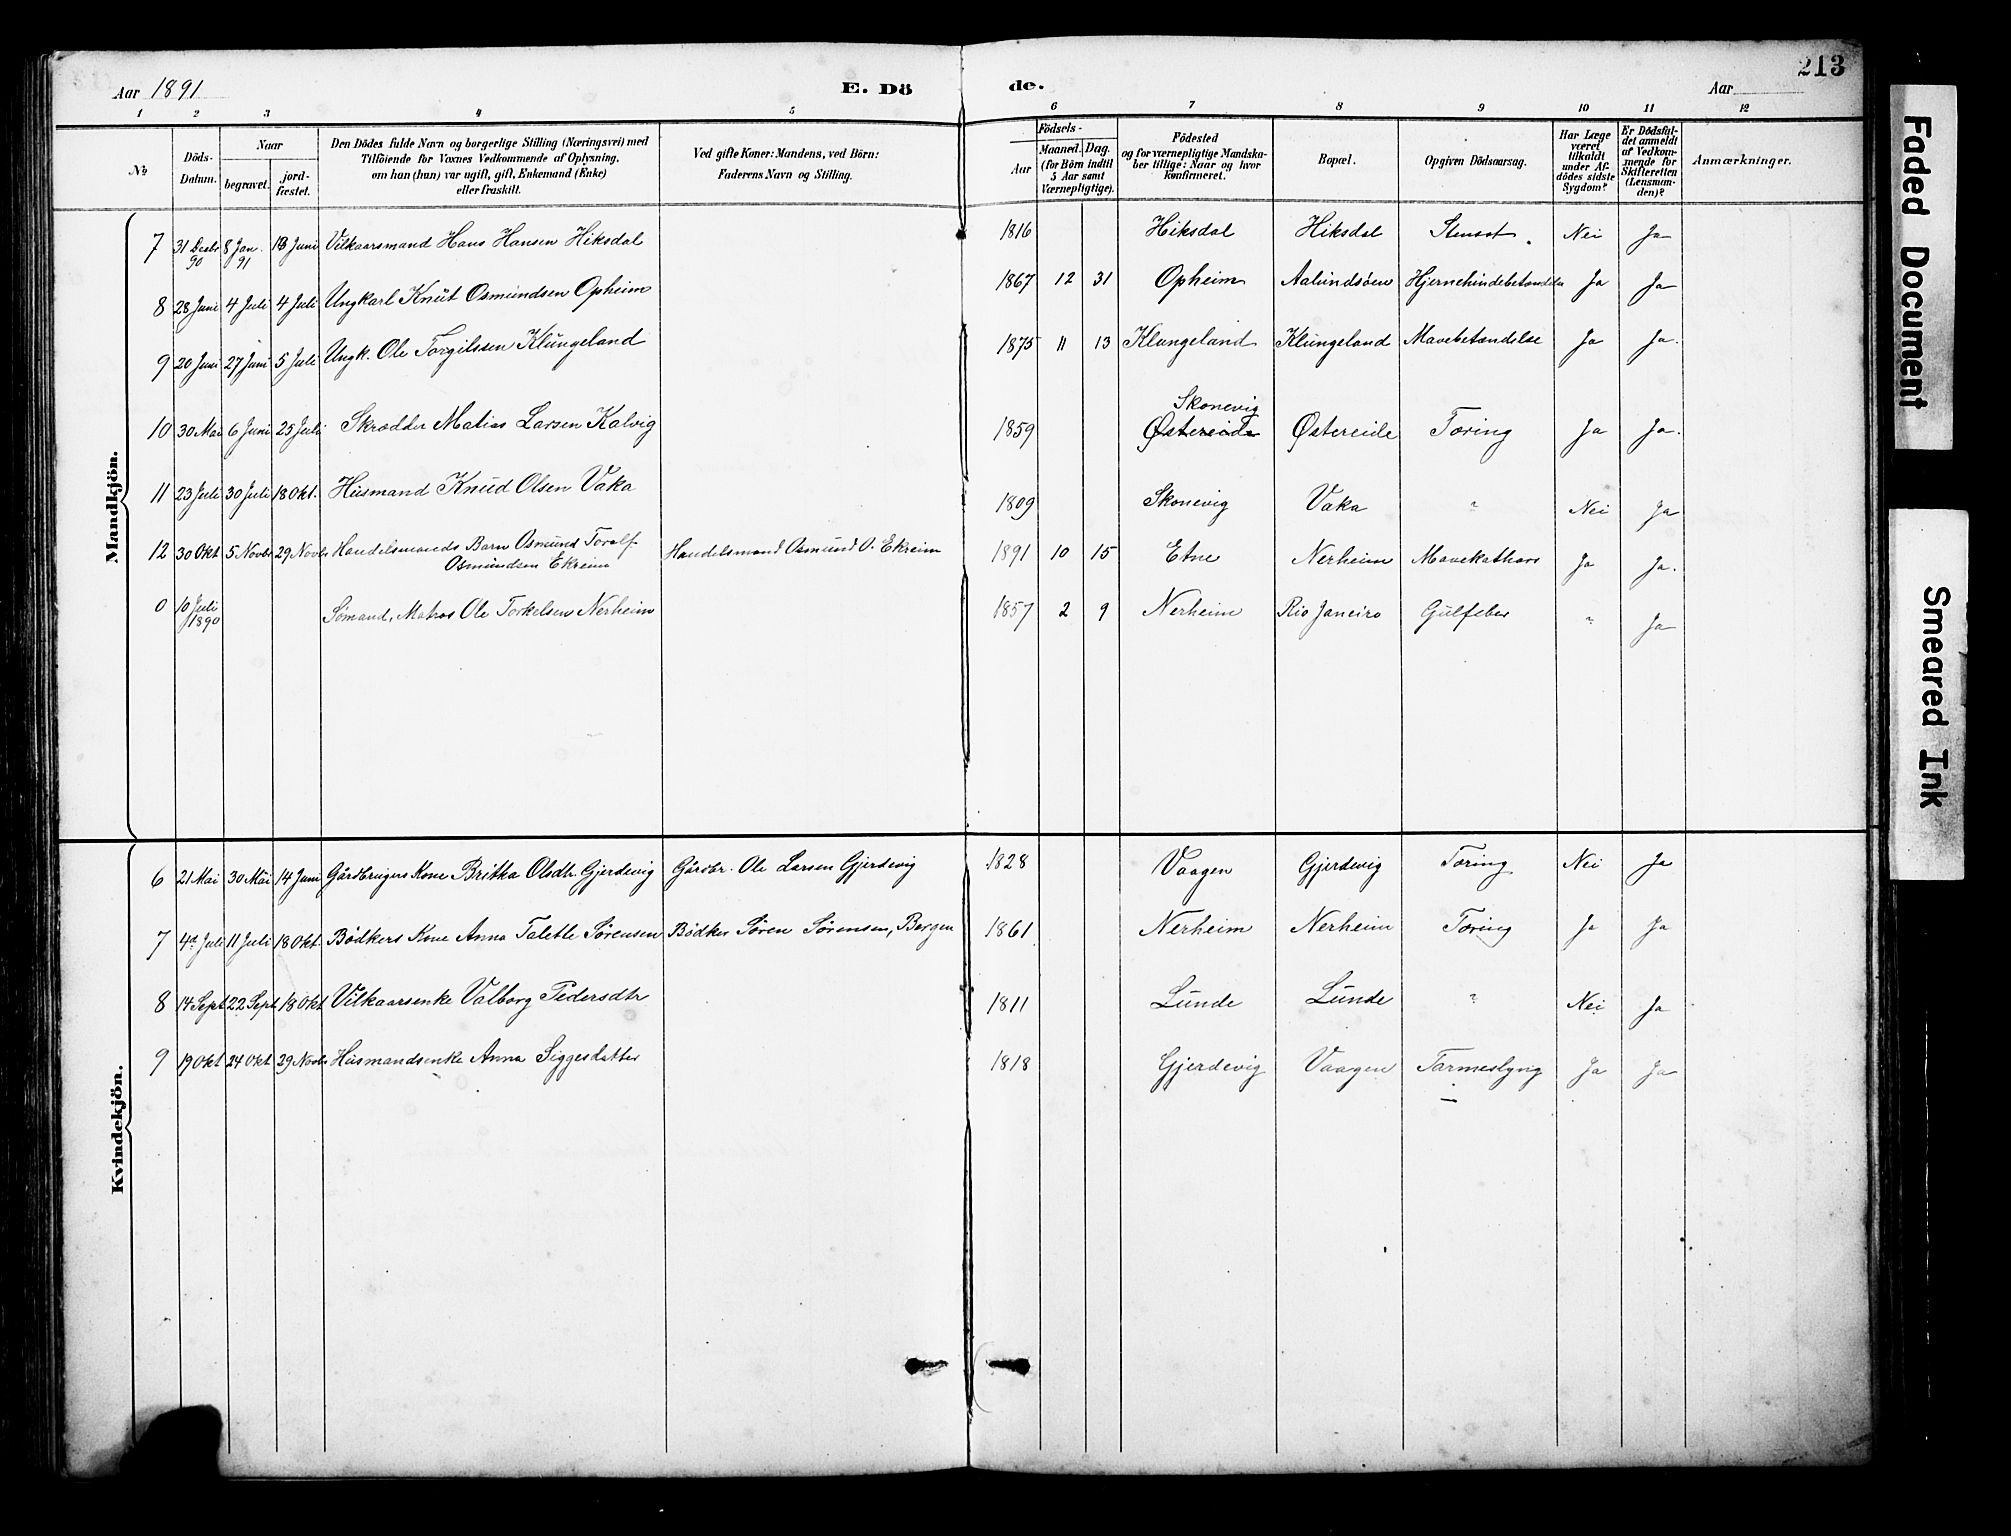 213
Aar 1891
E. Dö
de.
Aar
1 2 3 4 5 6 7 8 9 10 11 12
No
Döds-Datum.
Naar
begravet.
jord-fæstet.
Den Dödes fulde Navn og borgerlige Stilling (Næringsvei) med
Tilföiende for Voxnes Vedkommende af Oplysning,
om han (hun) var ugift, gift, Enkemand (Enke)
eller fraskilt.
Ved gifte Koner: Mandens, ved Börn:
Faderens Navn og Stilling.
Födsels-
Aar
Maaned. Dag.
(for Börn indtil
5 Aar samt
Værnepligtige).
Födested
og for værnepligtige Mandska-
ber tillige: Naar og hvor
konfirmeret.
Bopæl.
Opgiven Dödsaarsag.
Har Læge
været
tilkaldt
under Af-
dödes sidste
Sygdom?
Er Dödsfal-
det anmeldt
af Vedkom-
mende for
Skifteretten
(Lensman-
den)?
Anmærkninger.
Mandkjön.
7 31 Decbr 90 8 Jan. 91 13 Juni Vilkaarsmand Hans Hansen Hiksdal 1816 Hiksdal Hiksdal Nei Ja
8 28 Juni 4 Juli 4 Juli Ungkarl Knut Osmundsen Opheim 1867 12 31 Opheim Aalundsöen Hjernehindebetændelse Ja Ja
9 20 Juni 27 Juni 5 Juli Ungk. Ole Torgilssen Klungeland 1875 11 13 Klungeland Klungeland Mavebetændelse Ja Ja.
10 30 Mai 6 Juni 25 Juli Skrædder Matias Larsen Kalvig 1859 Skonevig Østereide Østereide Tæring Ja Ja.
11 23 Juli 30 Juli 18 Okt. Husmand Knud Olsen Vaka 1809 Skonevig Vaka ? Nei Ja
12 30 Okt 5 Novbr 29 Novbr Handelsmands Barn Osmund Toralf Osmundsen Ekreim Handelsmand Osmund O. Ekreim 1891 10 15 Etne Nerheim Mavekathar Ja Ja.
0 10 Juli 1890 Sømand, Matros Ole Torkelsen Nerheim 1857 2 9 Nerheim Rio Janeiro Gulfeber ? Ja
Kvindekjön.
6 21 Mai 30 Mai 14 Juni Gårdbrugers Kone Britha Olsdtr Gjerdevig Gårdbr. Ole Larsen Gjerdevig 1828 Vaagen Gjerdevig Tæring Nei Ja
7 4 Juli 11 Juli 18 Okt Bødkers Kone Anna Talette Sørensen Bødker Søren Sørensen, Bergen 1861 Nerheim Nerheim Tæring Ja Ja
8 14 Sept 22 Sept 18 Okt Vilkaarsenke Valborg Pedersdtr 1811 Lunde Lunde ? Nei Ja
9 19 Okt 24 Okt 29 Novbr Husmandsenke Anna Siggesdatter 1818 Gjerdevig Vaagen Tarmeslyng Ja Ja
Faded Document
Smeared Ink